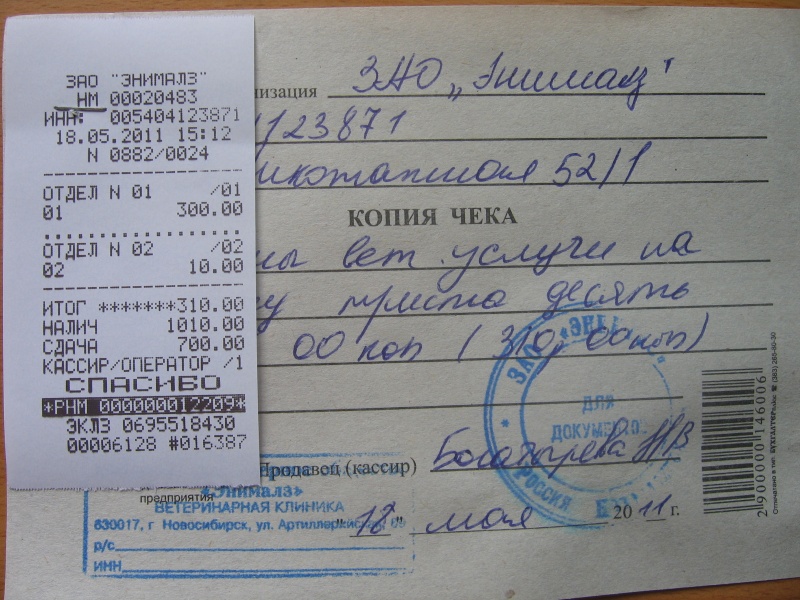 ЗАО "ЭНИМАЛЗ"
НМ 00020483
ИНН: 005404123871
18.05.2011 15:12
N 0882/0024
ОТДЕЛ N 01 /01
01 300.00
ОТДЕЛ N 02 /02
02 10.00
ИТОГ *******310.00
НАЛИЧ 1010.00
СДАЧА 700.00
КАССИР/ОПЕРАТОР /1
СПАСИБО
*РНМ 000000012209*
ЭКЛЗ 0695518430
00006128 #016387
низация ЗАО "Энималз"
123871
52/1
КОПИЯ ЧЕКА
ны вет. услуги на
у триста десять
00 коп (310,00коп)
ЗАО "ЭНИ
ДЛЯ
ДОКУМЕНТО
РОССИЯ
Продавец (кассир) Богатырева НВ
предприятия
"18" мая 2011 г.
«ЭниМалз»
ВЕТЕРИНАРНАЯ КЛИНИКА
630017, г Новосибирск, ул. Артиллерийская,
р/с
ИНН
2900000146006